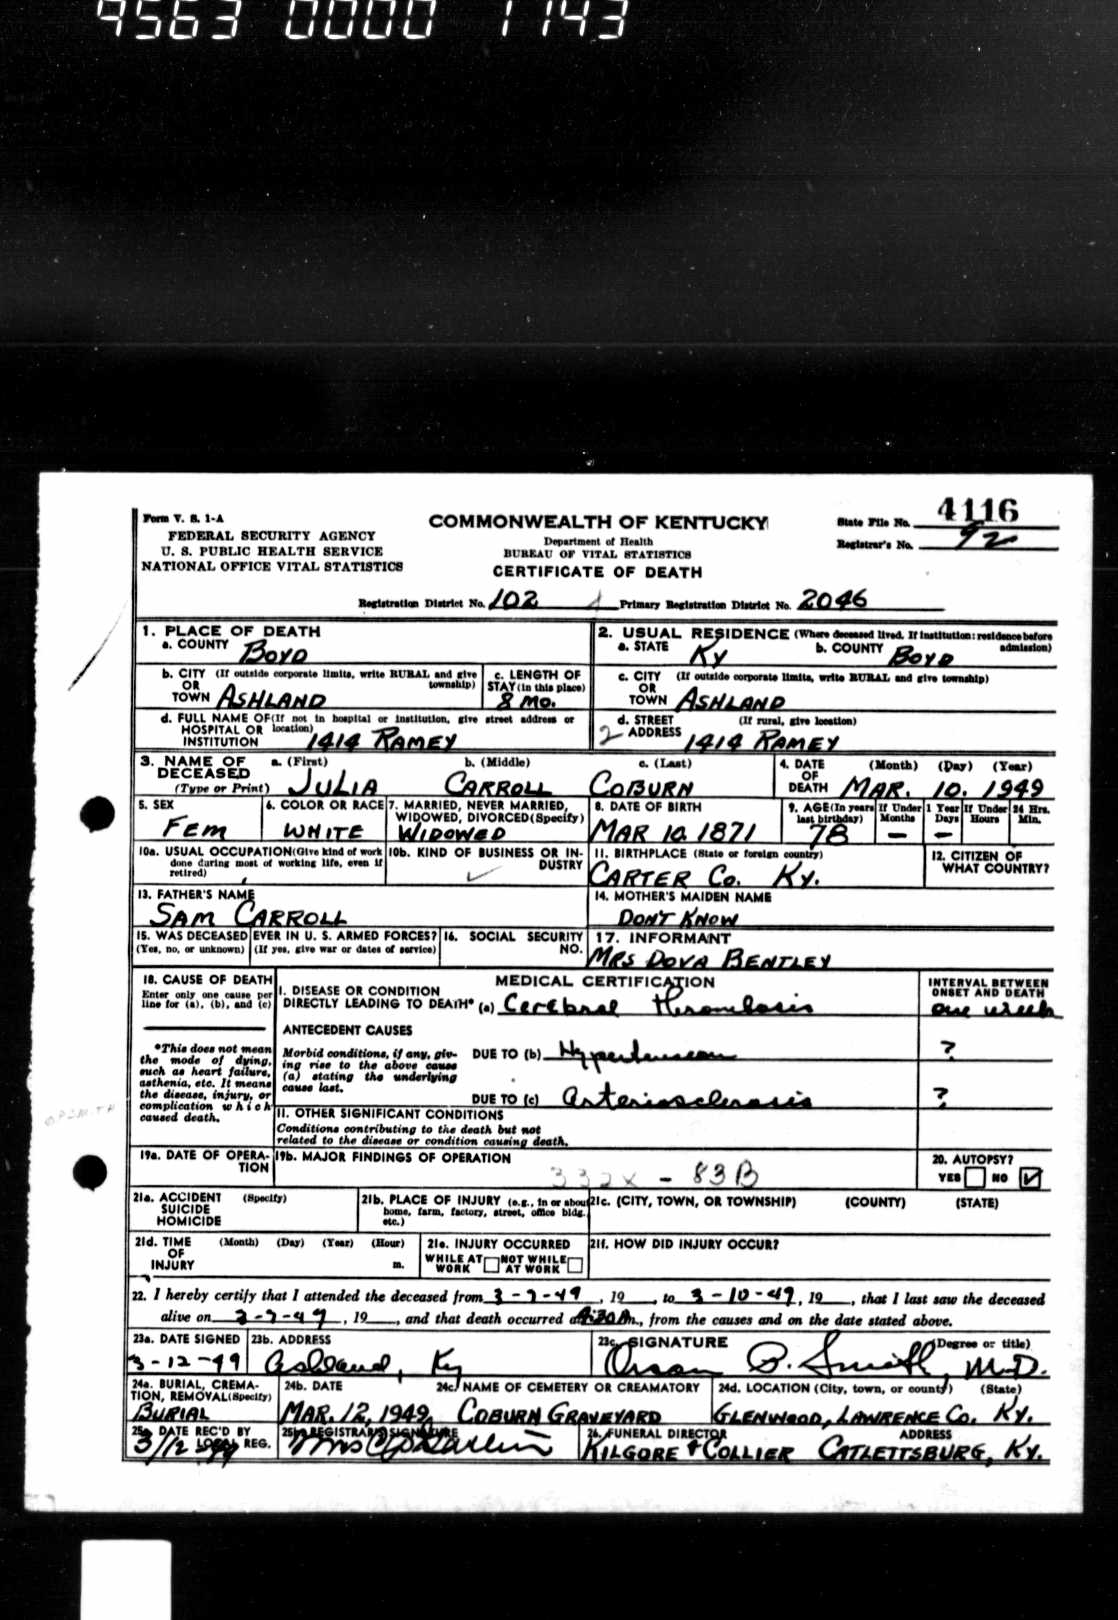 9563 0000 1143
4116
Form V. S. 1-A
FEDERAL SECURITY AGENCY
U. S. PUBLIC HEALTH SERVICE
NATIONAL OFFICE VITAL STATISTICS
COMMONWEALTH OF KENTUCKY
Department of Health
BUREAU OF VITAL STATISTICS
CERTIFICATE OF DEATH
State File No.
Registrar's No. 92
Registration District No. 102 Primary Registration District No. 2046
1. PLACE OF DEATH
a. COUNTY BOYD
2. USUAL RESIDENCE (Where deceased lived. If institution: residence before admission)
a. STATE KY b. COUNTY BOYD
b. CITY (If outside corporate limits, write RURAL and give township)
OR
TOWN ASHLAND
c. LENGTH OF STAY (in this place)
8 MO.
c. CITY (If outside corporate limits, write RURAL and give township)
OR
TOWN ASHLAND
d. FULL NAME OF (If not in hospital or institution, give street address or location)
HOSPITAL OR
INSTITUTION 1414 RAMEY
d. STREET (If rural, give location)
2 ADDRESS 1414 RAMEY
3. NAME OF DECEASED
(Type or Print)
a. (First) b. (Middle) c. (Last)
JULIA CARROLL COBURN
4. DATE OF DEATH (Month) (Day) (Year)
MAR. 10. 1949
5. SEX
FEM
6. COLOR OR RACE
WHITE
7. MARRIED, NEVER MARRIED, WIDOWED, DIVORCED (Specify)
WIDOWED
8. DATE OF BIRTH
MAR 10. 1871
9. AGE (In years last birthday)
78
If Under 1 Year
Months Days
– –
If Under 24 Hrs.
Hours Min.
10a. USUAL OCCUPATION (Give kind of work done during most of working life, even if retired)
10b. KIND OF BUSINESS OR INDUSTRY
11. BIRTHPLACE (State or foreign country)
CARTER CO. KY.
12. CITIZEN OF WHAT COUNTRY?
13. FATHER'S NAME
SAM CARROLL
14. MOTHER'S MAIDEN NAME
DON'T KNOW
15. WAS DECEASED EVER IN U. S. ARMED FORCES?
(Yes, no, or unknown) (If yes, give war or dates of service)
16. SOCIAL SECURITY NO.
17. INFORMANT
MRS DOVA BENTLEY
18. CAUSE OF DEATH
Enter only one cause per line for (a), (b), and (c)
*This does not mean the mode of dying, such as heart failure, asthenia, etc. It means the disease, injury, or complication which caused death.
MEDICAL CERTIFICATION
INTERVAL BETWEEN ONSET AND DEATH
I. DISEASE OR CONDITION
DIRECTLY LEADING TO DEATH* (a) Cerebral Thrombosis one week
ANTECEDENT CAUSES
Morbid conditions, if any, giving rise to the above cause (a) stating the underlying cause last.
DUE TO (b) Hypertension ?
DUE TO (c) Arteriosclerosis ?
II. OTHER SIGNIFICANT CONDITIONS
Conditions contributing to the death but not related to the disease or condition causing death.
19a. DATE OF OPERATION
19b. MAJOR FINDINGS OF OPERATION
332X - 83B
20. AUTOPSY?
YES NO ✓
21a. ACCIDENT (Specify)
SUICIDE
HOMICIDE
21b. PLACE OF INJURY (e.g., in or about home, farm, factory, street, office bldg. etc.)
21c. (CITY, TOWN, OR TOWNSHIP) (COUNTY) (STATE)
21d. TIME OF INJURY (Month) (Day) (Year) (Hour)
m.
21e. INJURY OCCURRED
WHILE AT WORK NOT WHILE AT WORK
21f. HOW DID INJURY OCCUR?
22. I hereby certify that I attended the deceased from 3-7-49, 19__, to 3-10-49, 19__, that I last saw the deceased
alive on 3-7-49, 19__, and that death occurred at m., from the causes and on the date stated above.
23a. DATE SIGNED
3-12-49
23b. ADDRESS
Ashland, Ky
23c. SIGNATURE (Degree or title)
P. Smith, M.D.
24a. BURIAL, CREMATION, REMOVAL (Specify)
BURIAL
24b. DATE
MAR. 12, 1949
24c. NAME OF CEMETERY OR CREAMATORY
COBURN GRAVEYARD
24d. LOCATION (City, town, or county) (State)
GLENWOOD, LAWRENCE CO. KY.
25a. DATE REC'D BY LOCAL REG.
3/12-49
25b. REGISTRAR'S SIGNATURE
Mrs
26. FUNERAL DIRECTOR ADDRESS
KILGORE & COLLIER CATLETTSBURG, KY.